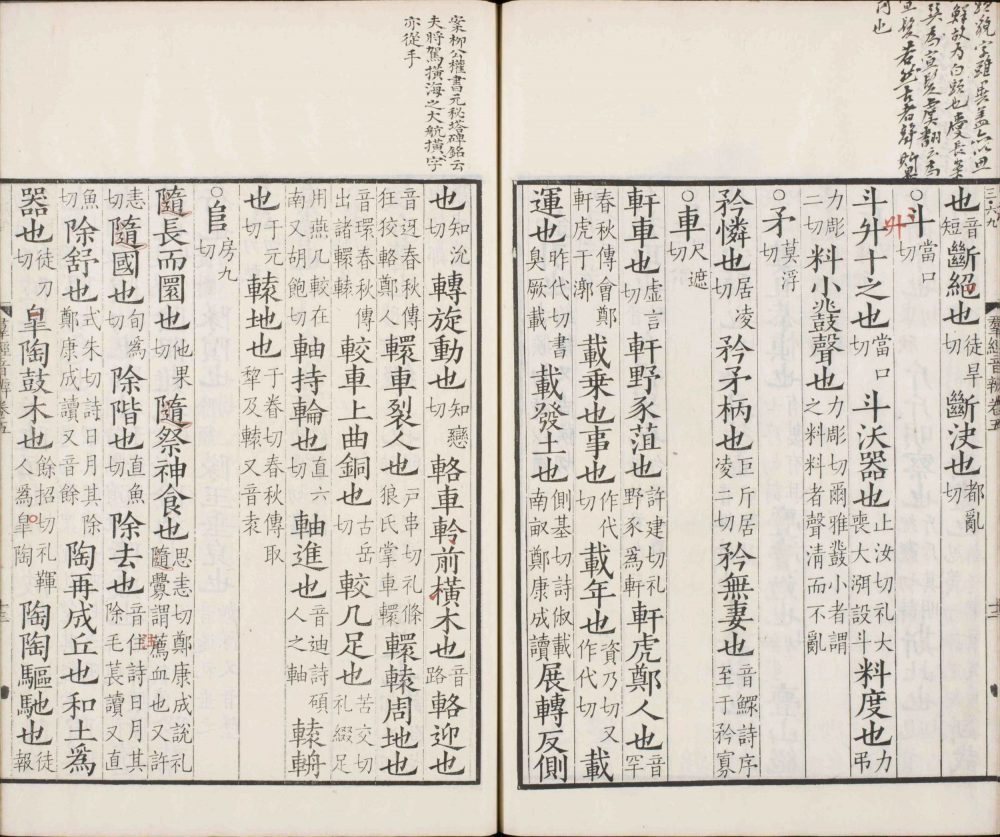 也音短斷絕也徒旱切斷決也都亂切
○斗當口切
斗升十之也當口切斗沃器也止汝切礼大喪大渳設斗料度也力弔
二切料小鼗聲也力彫切爾雅鼗小者謂之料料者聲清而不亂
○矛莫浮切
矜憐也居凌切矜矛柄也巨斤居凌二切矜無妻也音鰥詩序至于矜寡
○車尺遮切
軒車也虛言切軒野豕菹也許建切礼野豕爲軒軒虎鄭人也音罕
春秋傳會鄭軒虎于漷載乗也事也作代切載年也資乃切又作代切載
運也昨代切書臾厥載載發土也側基切詩俶載南畝鄭康成讀展轉反側
案柳公權書元秘塔碑銘云
夫將駕橫海之大航橫字
亦從手
也知沇切轉旋動也知戀切輅車軨前橫木也音路輅迎也
音迓春秋傳狂狡輅鄭人轘車裂人也戸串切礼條狼氏掌車轘轘轅周地也
音環春秋傳出諸轘轅較車上曲銅也古岳切較几足也苦交切礼綴足
用燕几較在南又胡飽切軸持輪也直六切軸進也音迪詩碩人之軸轅冉
也于元切轅地也于眷切春秋傳取犂及轅又音袁
○𨸏房九切
隨長而圓也他果切隨祭神食也思恚切鄭康成說礼隨釁謂薦血也又許
恚切隨國也旬爲切除階也直魚切除去也音住詩日月其除毛萇讀又直
魚切除舒也式朱切詩日月其除鄭康成讀又音餘陶再成丘也和土爲
器也徒刀切皐陶鼓木也餘招切礼韗人爲皐陶陶陶驅馳也徒報